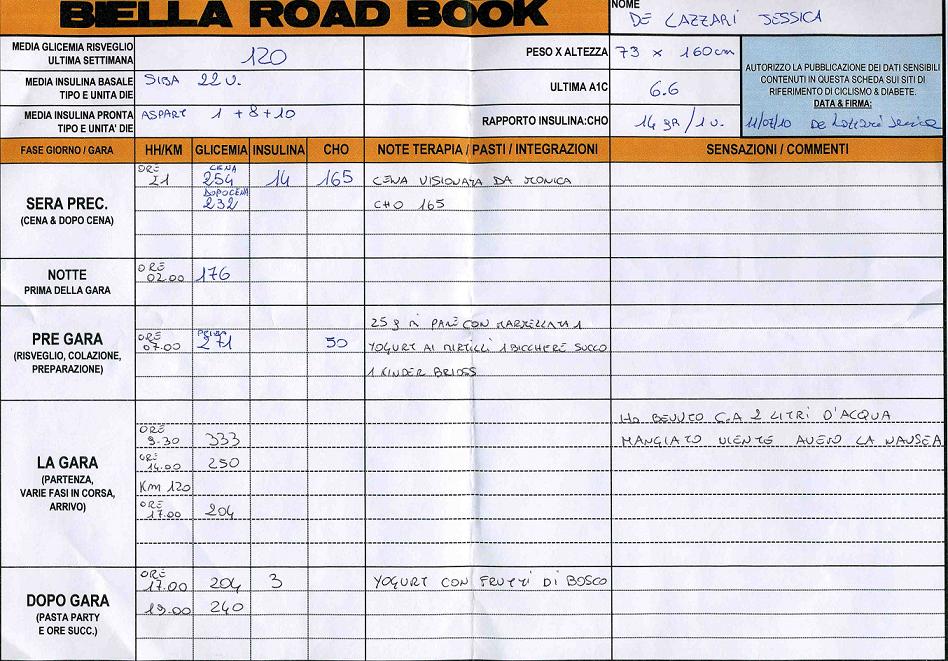 BIELLA ROAD BOOK
NOME
DE LAZZARI JESSICA
MEDIA GLICEMIA RISVEGLIO
ULTIMA SETTIMANA
120
PESO X ALTEZZA
73 x 160cm
AUTORIZZO LA PUBBLICAZIONE DEI DATI SENSIBILI
CONTENUTI IN QUESTA SCHEDA SUI SITI DI
RIFERIMENTO DI CICLISMO & DIABETE.
DATA & FIRMA:
11/07/10 De Lazzari Jessica
MEDIA INSULINA BASALE
TIPO E UNITA DIE
22 U.
ULTIMA A1C
6.6
MEDIA INSULINA PRONTA
TIPO E UNITA' DIE
ASPART 1 + 8 + 10
RAPPORTO INSULINA:CHO
14 gr / 1 u.
FASE GIORNO / GARA HH/KM GLICEMIA INSULINA CHO NOTE TERAPIA / PASTI / INTEGRAZIONI SENSAZIONI / COMMENTI
SERA PREC.
(CENA & DOPO CENA)
ORE 21 CENA 254 14 165 CENA VISIONATA DA MONICA
DOPOCENA 232 CHO 165
NOTTE
PRIMA DELLA GARA
ORE 02.00 176
PRE GARA
(RISVEGLIO, COLAZIONE,
PREPARAZIONE)
25 g DI PANE CON MARMELLATA 1
ORE 07.00 PRIMA 271 50 YOGURT AI MIRTILLI 1 BICCHERE SUCCO
1 KINDER BRIOSS
LA GARA
(PARTENZA,
VARIE FASI IN CORSA,
ARRIVO)
HO BEVUTO C.A 2 LITRI D'ACQUA
ORE 9.30 333 MANGIATO NIENTE AVEVO LA NAUSEA
ORE 14.00 250
Km 120
ORE 17.00 204
DOPO GARA
(PASTA PARTY
E ORE SUCC.)
ORE 17.00 204 3 YOGURT CON FRUTTI DI BOSCO
19.00 240